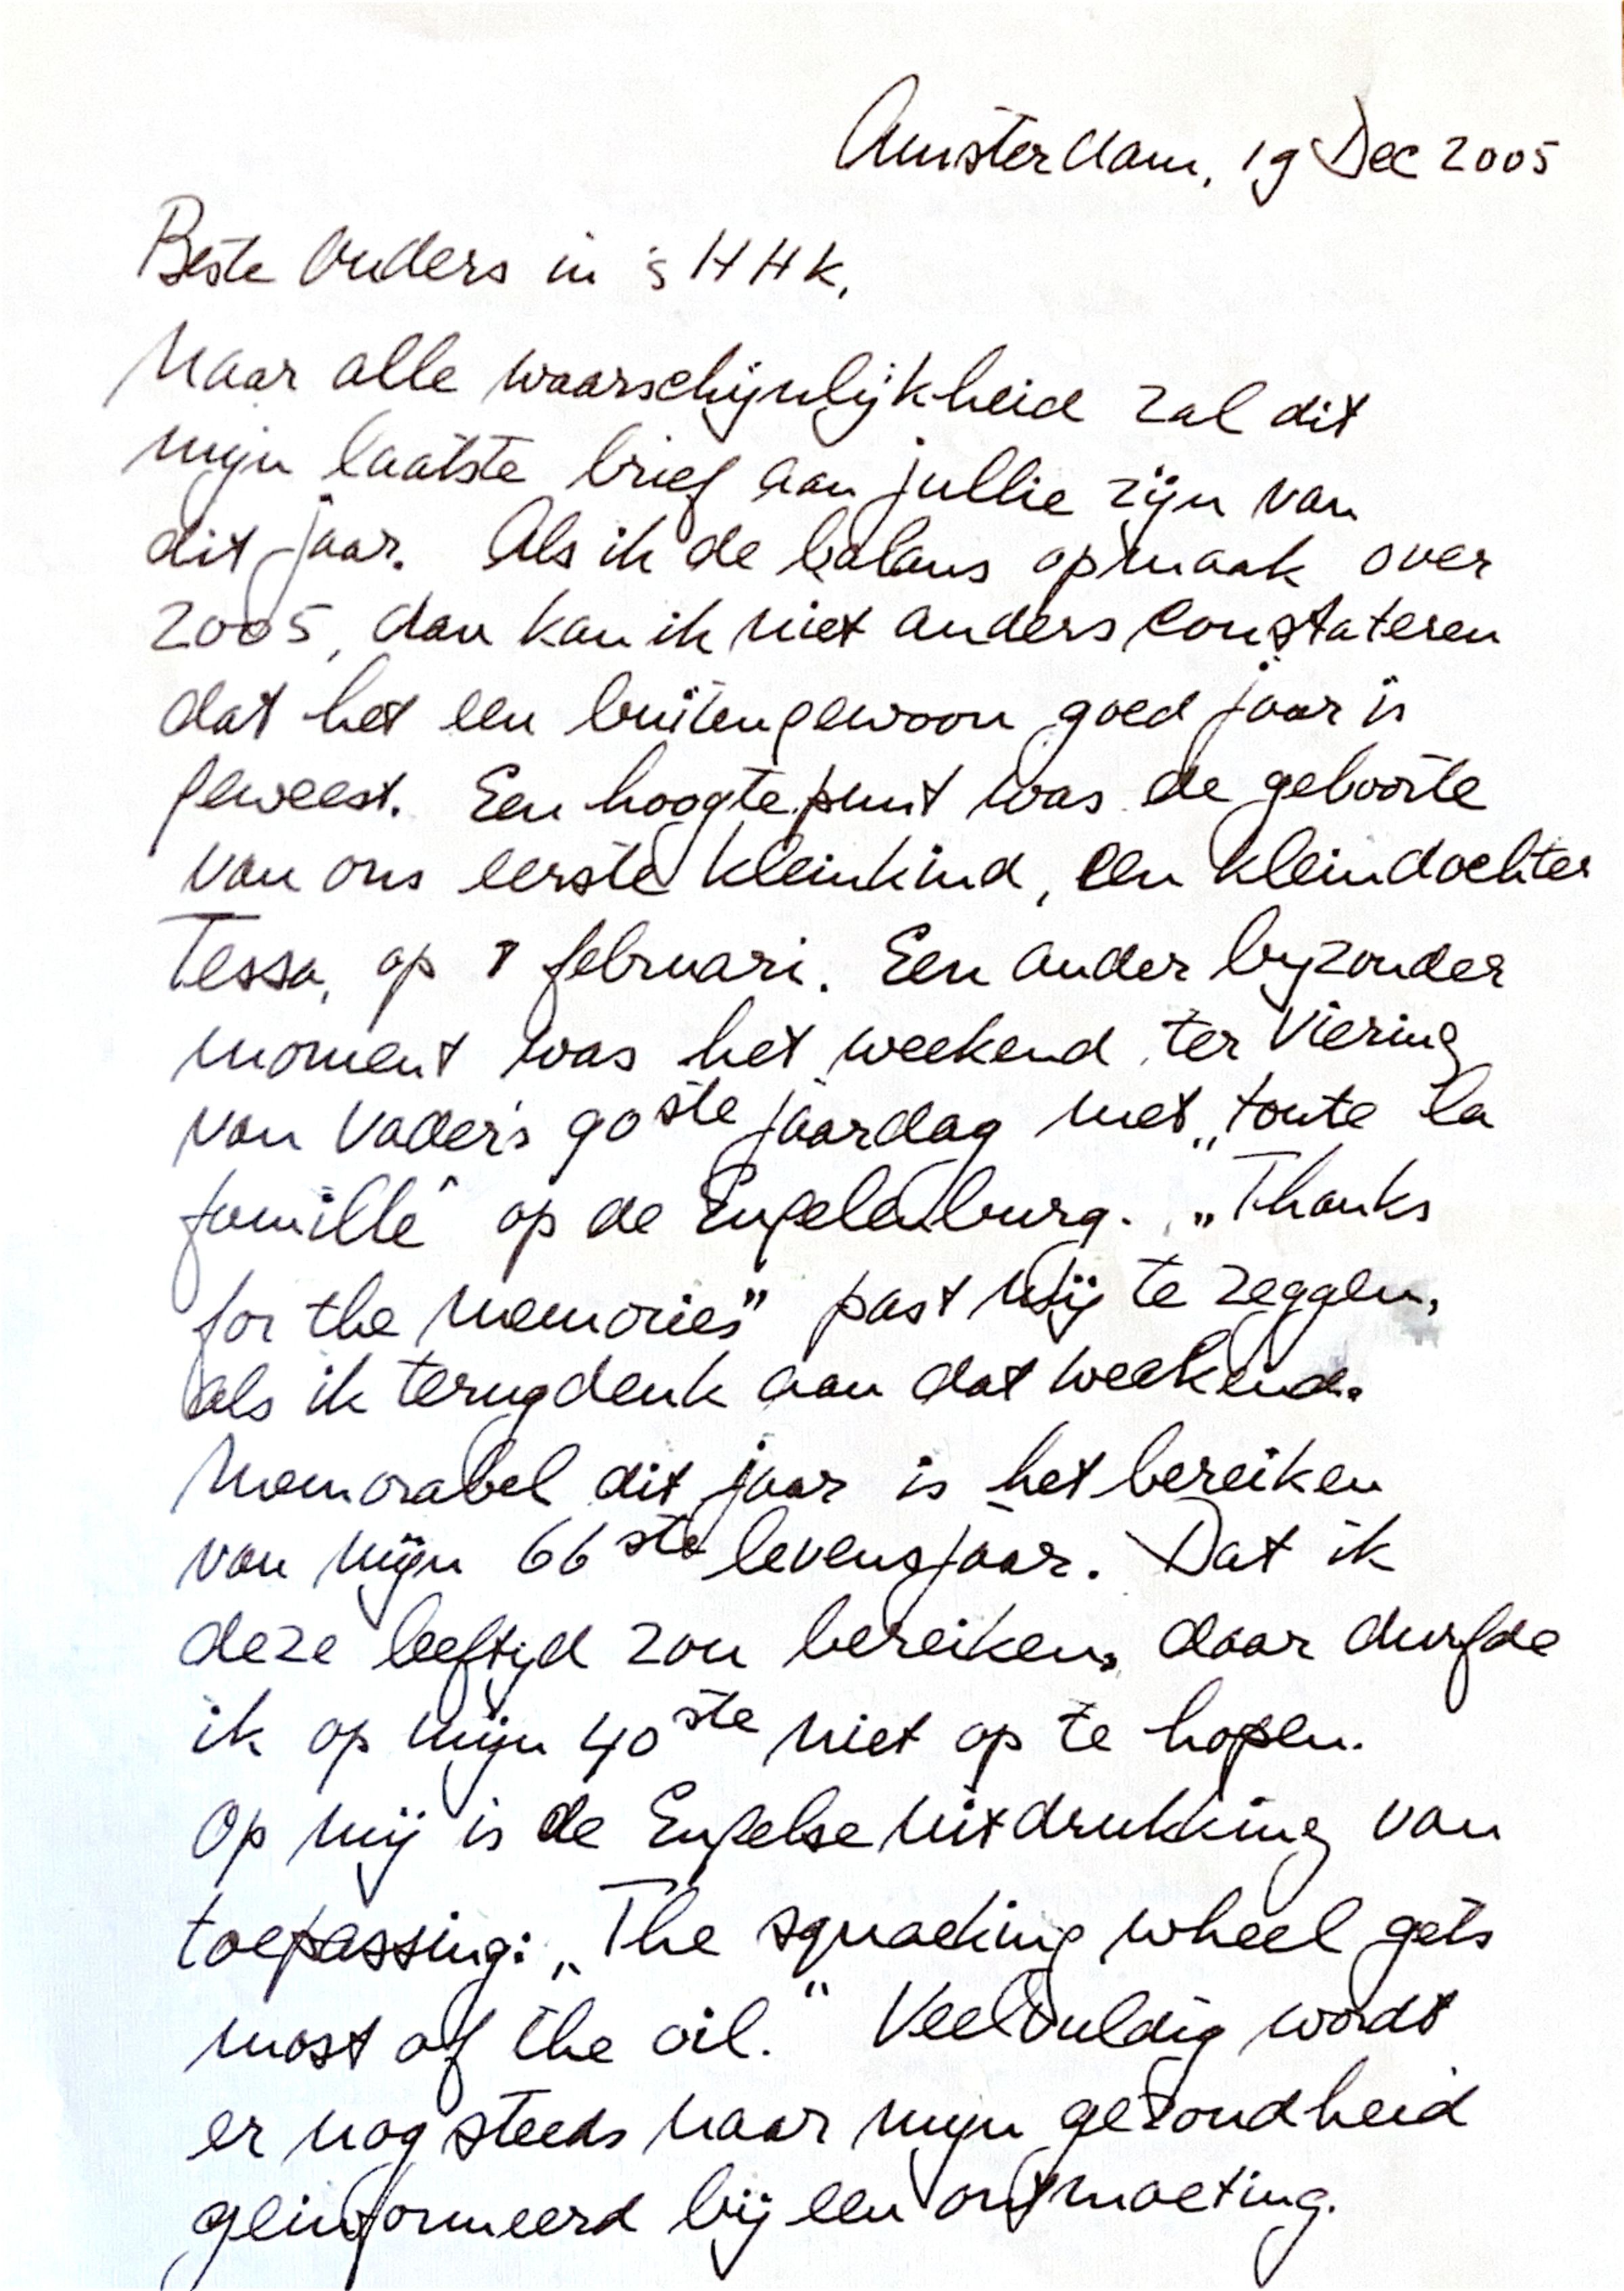 Amsterdam, 19 Dec 2005
Beste Ouders in 's HHK,
Naar alle waarschijnlijkheid zal dit
mijn laatste brief aan jullie zijn van
dit jaar. Als ik de balans opmaak over
2005, dan kan ik niet anders constateren
dat het een buitengewoon goed jaar is
geweest. Een hoogtepunt was de geboorte
van ons eerste kleinkind, een kleindochter
Tessa, op februari. Een ander bijzonder
moment was het weekend ter viering
van Vader's 90ste jaardag met „toute la
famille" op de Engelenburg. „Thanks
for the memories" past mij te zeggen,
als ik terugdenk aan dat weekend.
Memorabel dit jaar is het bereiken
van mijn 66ste levensjaar. Dat ik
deze leeftijd zou bereiken, daar durfde
ik op mijn 40ste niet op te hopen.
Op mij is de Engelse uitdrukking van
toepassing: „The squacking wheel gets
most of the oil." Veelvuldig wordt
er nog steeds naar mijn gezondheid
geinformeerd bij een ontmoeting.